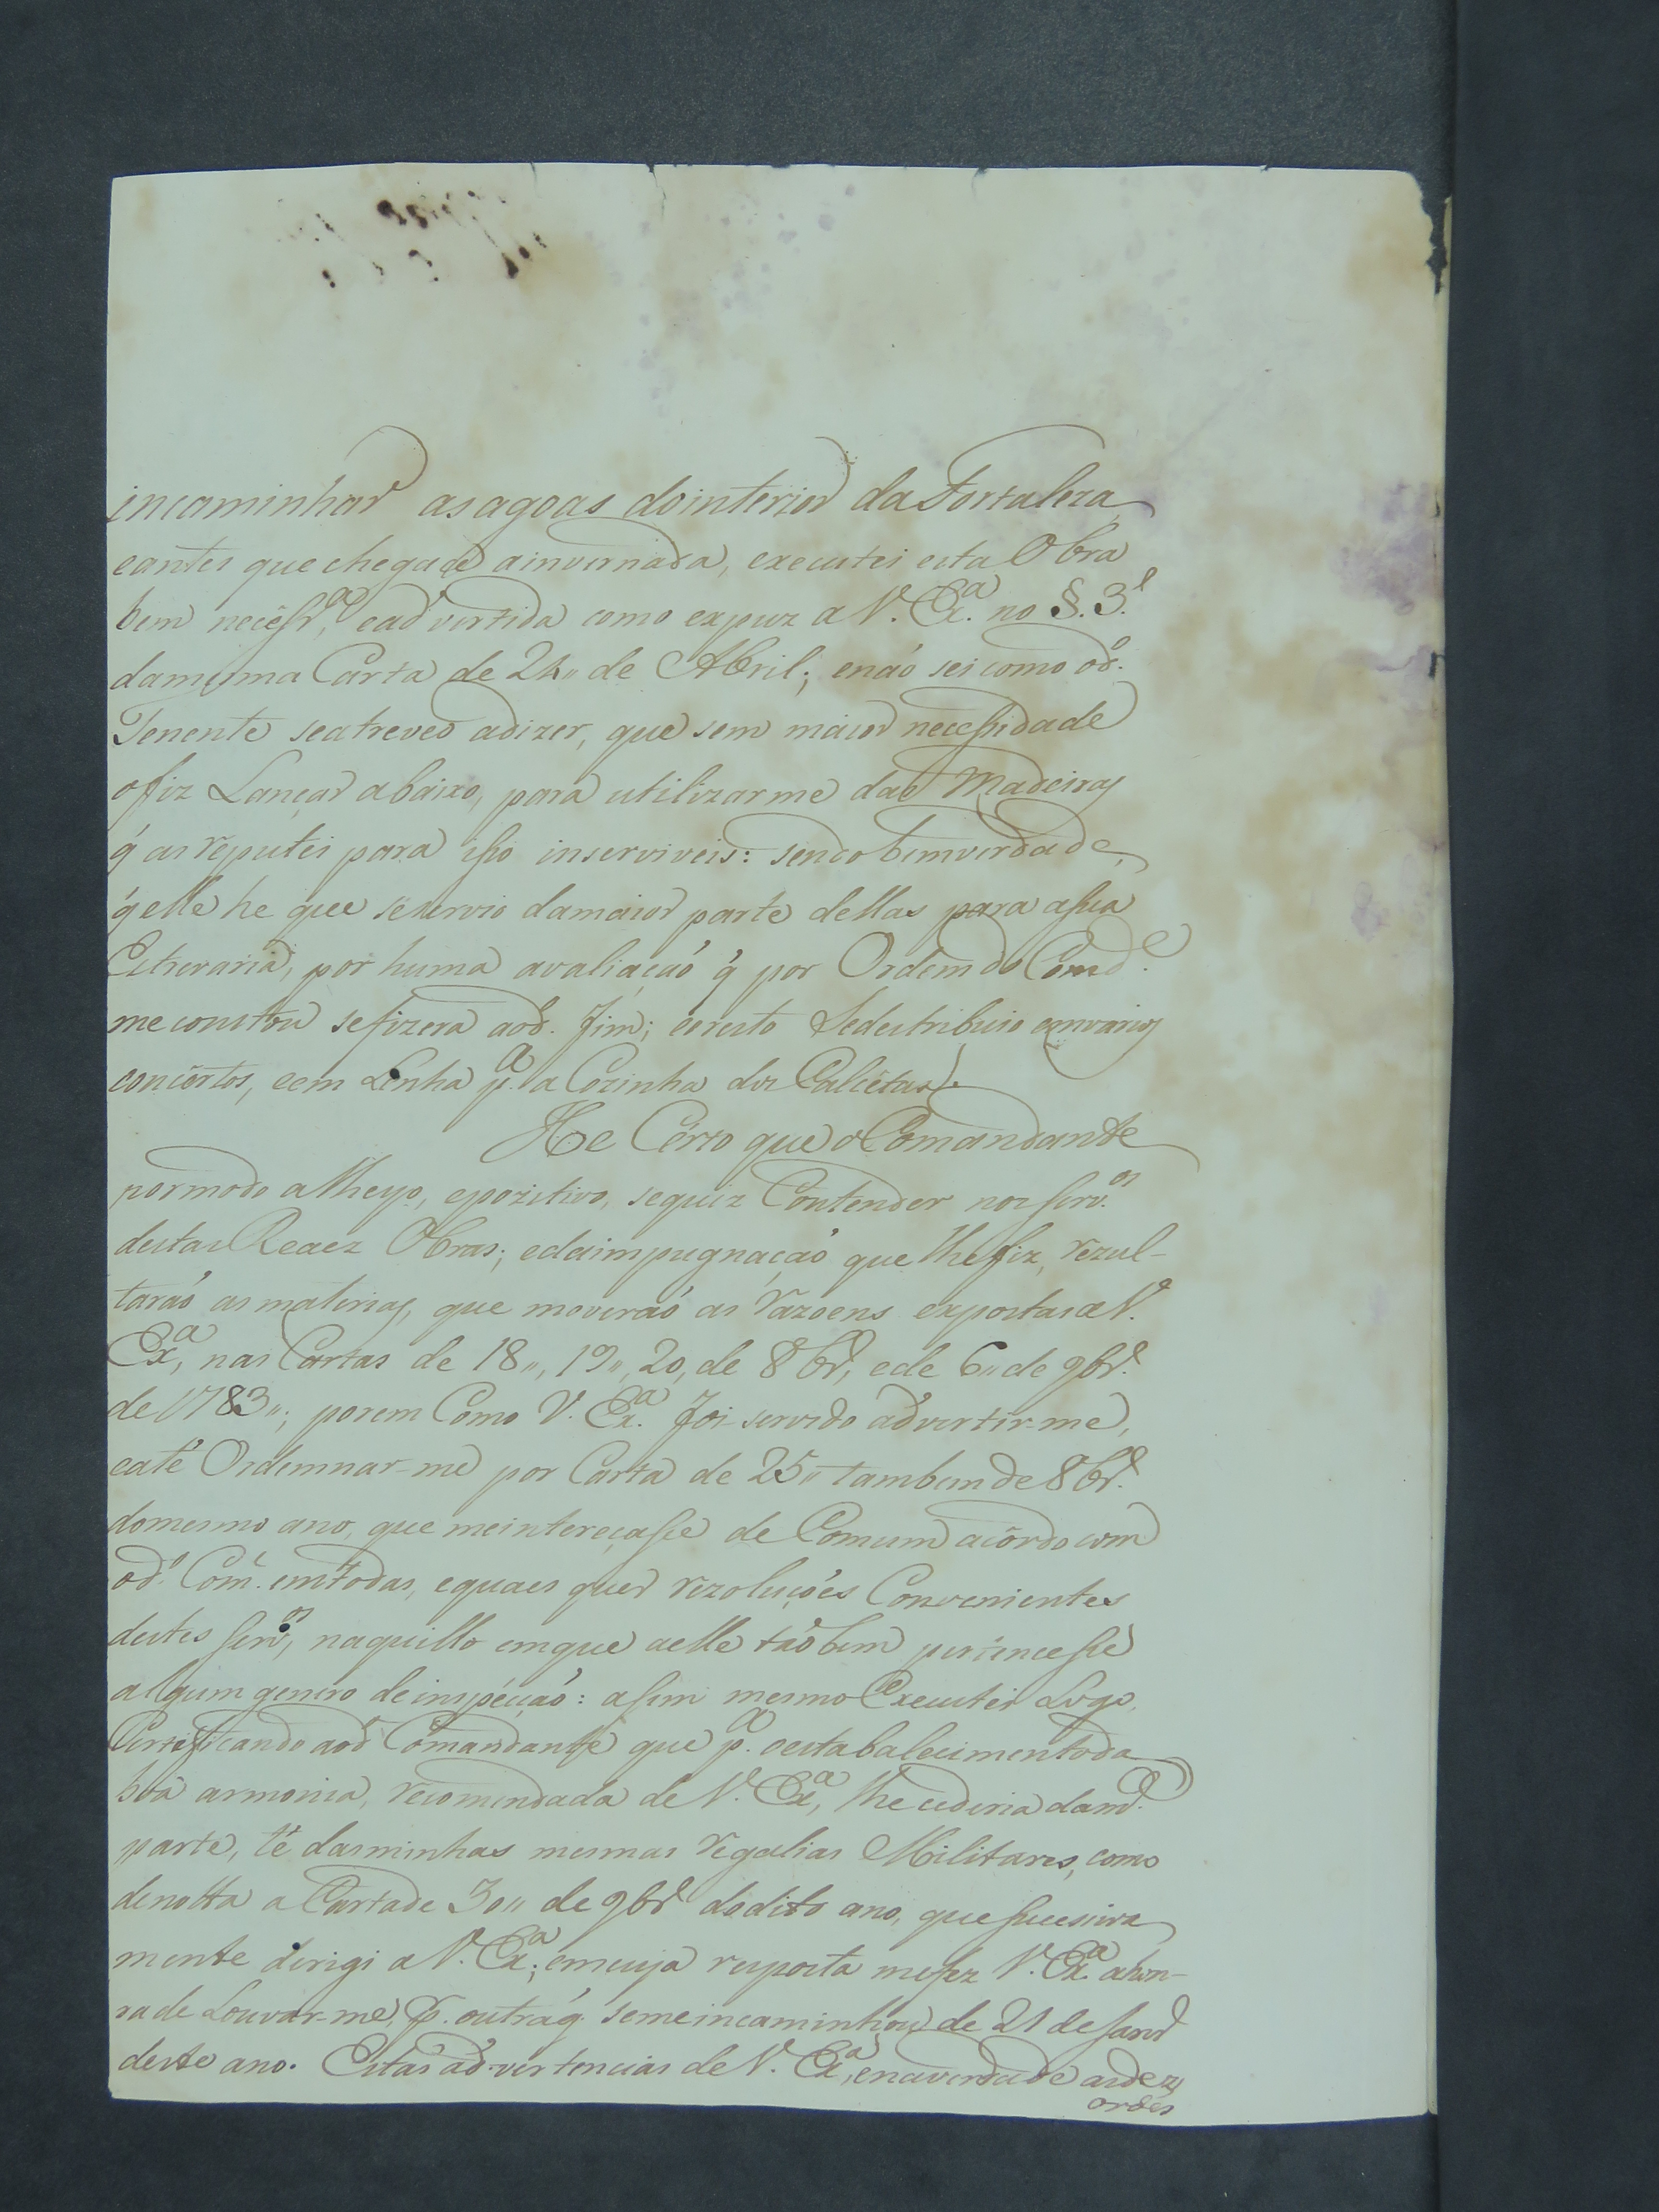 incaminhar as agoas do interior da Fortaleza,
e antes que chegace a invernada, executei esta Obra
bem neceſsr.ª, e advertida como expuz a V. Ex.ª no §. 3.º
da mesma Carta de 24,, de Abril; e náo sei como o d.º
Tenente se atreveo a dizer, que sem maior neceſsidade
o fiz Lançar abaixo, para utilizarme das Madeiras
q́ as reputei para iſso inserviveis: sendo bem verdade,
q́ elle he que se servio da maior parte dellas para a ſua
Estrevaria, por huma avaliaçaó q́ por Ordem do Comd.e
me constou se fizera ao d.º fim; e o resto Se destribuio em varios
concertos, e em Lenha p.ª a Cozinha dos Calcetas.
He Certo que o Comandante
por modo alheyo, e pozitivo, se quiz Contender nos ſerv.os
destas Reaez Obras; e da impugnaçaó que lhe fiz, rezul-
taraó as materias, que moveraó as razoens expostas a V.
Ex.ª, nas Cartas de 18,,, 19,, 20, de 8br.º, e de 6,, de 9br.º
de 1783,,; porem Como V. Ex.ª foi servido advertir-me,
e até Ordemnar-me por Carta de 25,, tambem de 8br.º
do mesmo ano, que me intereçaſse de Comum acôrdo com
o d.º Com.e em todas, e quaes quer rezoluções Convenientes
destes ſerv.os, naquillo em que a elle táobem pertenceſse
algum genero de inspécçaó: aſsim mesmo Executei Logo,
Certeficando ao d.º Comandante que p.ª o estabalecimento da
bôa armonia, recomendada de V. Ex.ª, lhe cederia da m.ª
parte, té das minhas mesmas regalias Militares, como
denotta a Carta de 30,, de 9br.º do dito ano, que ſucessiva
mente dirigi a V. Ex.ª; em cuja resposta me fez V. Ex.ª a hon-
ra de Louvar-me, p. outra q́ se me incaminhou de 21 de Janr.º
deste ano. Estas ad-vertencias de V. Ex.ª, e na verdade as dez
ordes